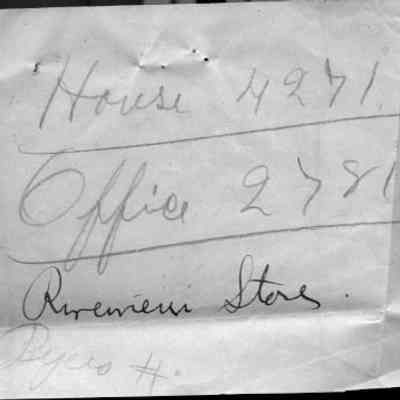 House 4271.
Office 2781
Riverview Store.
Byers #.